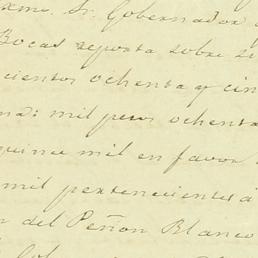 Exmo. Sr. Gobernador
Bocas reporta sobre
cientos ochenta y cin
mil pesos ochenta
quince mil en favor
mil pertenecientes á
del Peñon Blanco